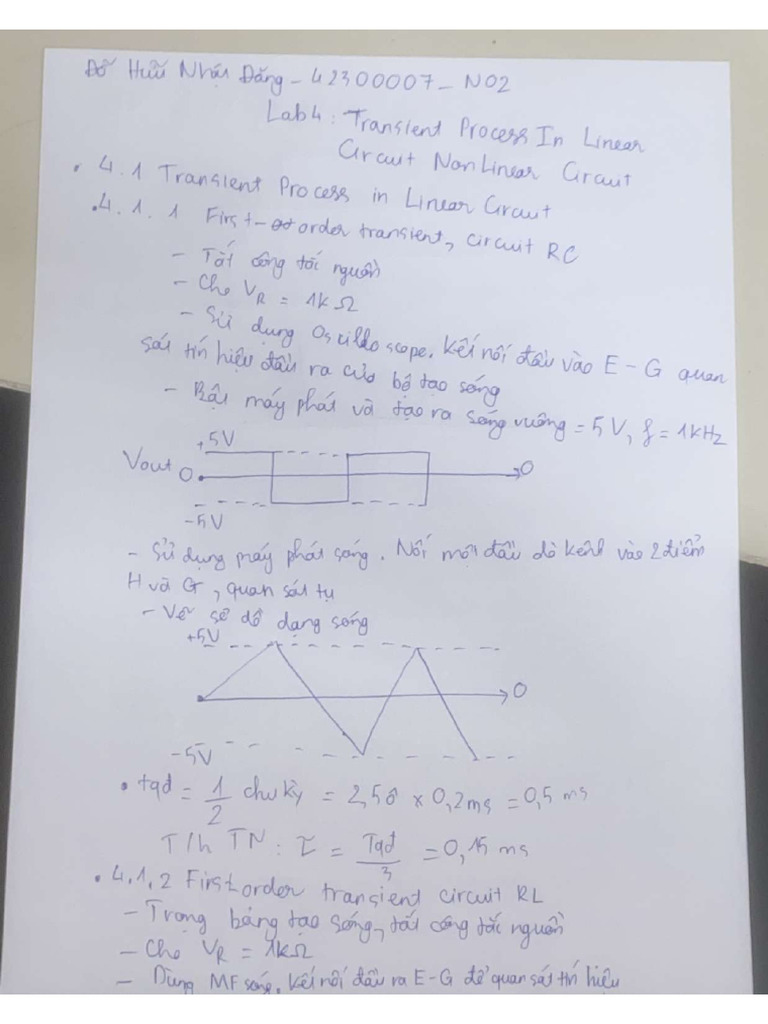 Đỗ Hữu Nhật Đăng - 42300007 - N02
Lab 4: Transient Process In Linear
Circuit NonLinear Circuit
. 4.1 Transient Process in Linear Circuit
. 4.1.1 First- order transient, circuit RC
- Tắt công tắc nguồn
- Cho VR = 1kΩ
- Sử dụng Oscilldo scope. Kết nối đầu vào E - G quan
sát tín hiệu đầu ra của bộ tạo sóng
- Bật máy phát và tạo ra sóng vuông = 5V, f = 1kHz
+5V
Vout 0 0
-5V
- Sử dụng máy phát sóng. Nối một đầu dò kênh vào 2 điểm
H và G, quan sát tụ
- Vẽ sơ đồ dạng sóng
+5V
0
-5V
. tqđ = 1/2 chu kỳ = 2,5ô × 0,2ms = 0,5 ms
T/h TN: τ = Tqđ/3 = 0,15 ms
. 4.1.2 First order transient circuit RL
- Trong bảng tạo sóng, tắt công tắc nguồn
- Cho VR = 1kΩ
- Dùng MF sóng. Kết nối đầu ra E-G để quan sát tín hiệu